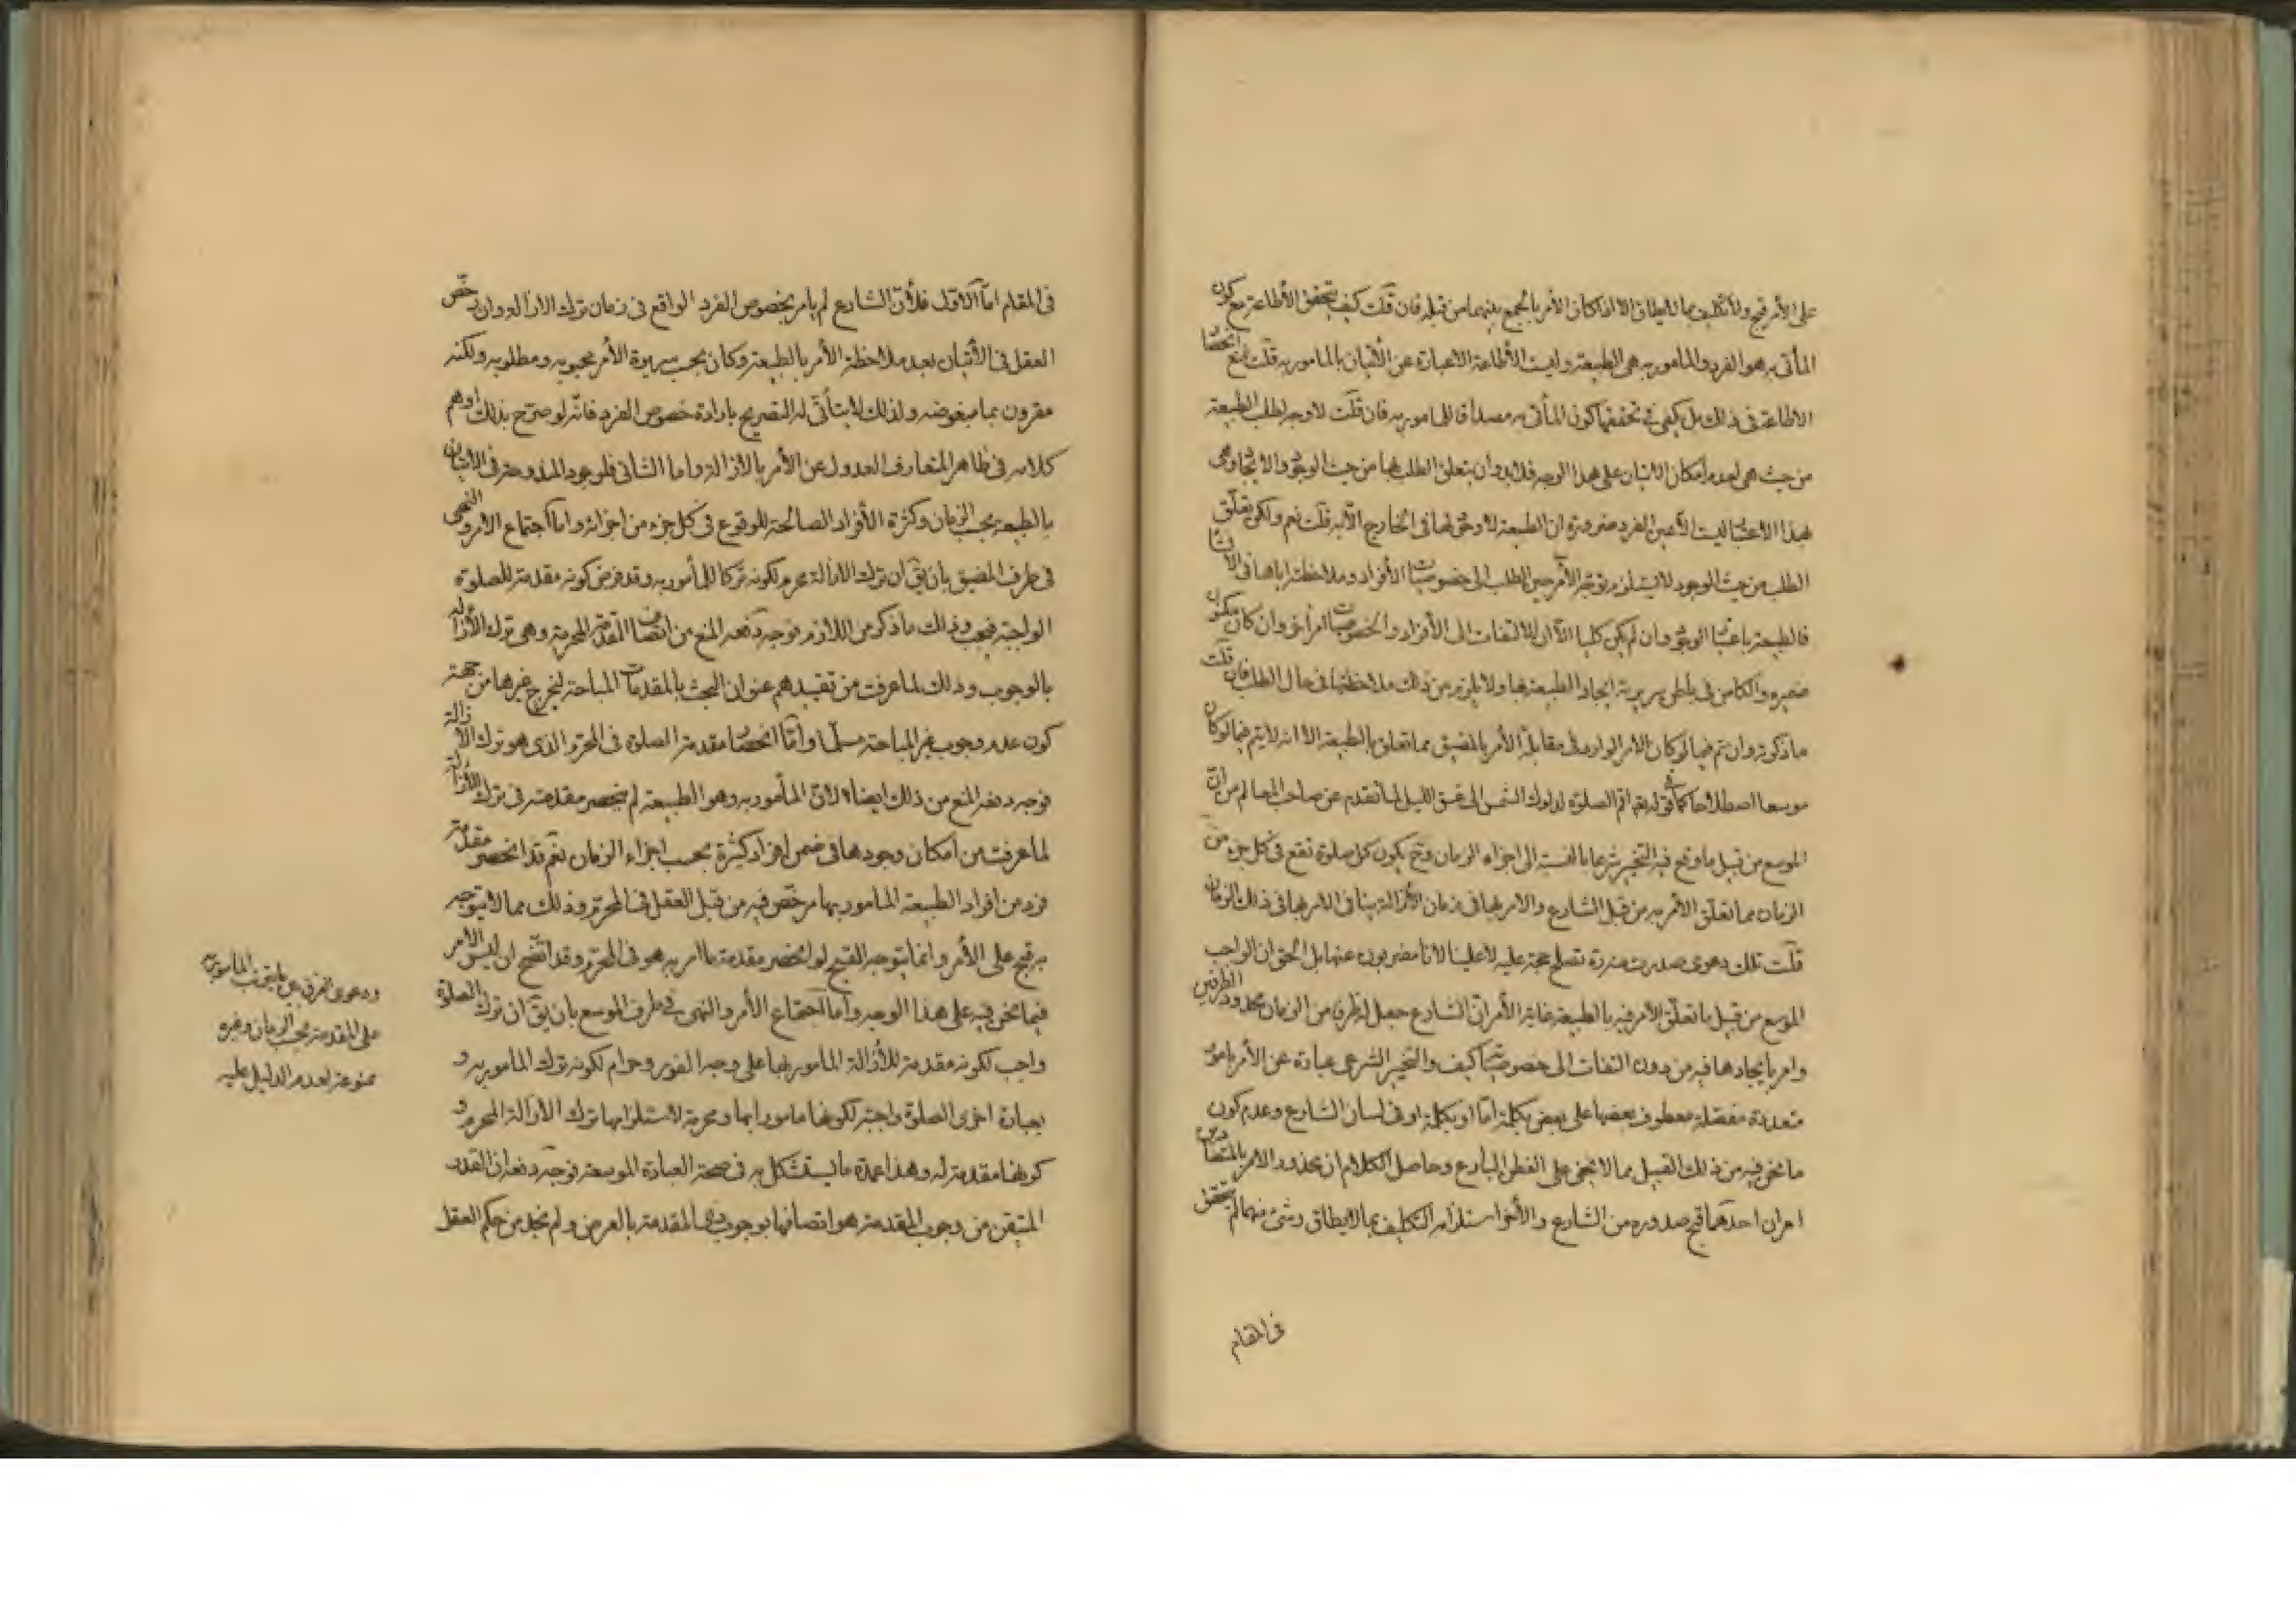 على الأمر قبيح ولا تكليف بما لا يطاق الا اذا كان الأمر بالجمع بينهما من قبله فان قلت كيف يتحقق الأطاعة مع كون
المأتى به هو الفرد والمامور به هى الطبيعة وليست الأطاعة الا عبارة عن الأتيان بالمامور به قلت نمنع انحصار
الاطاعة فى ذلك بل يكفى فى تحققها كون المأتى به مصداقا للمامور به فان قلت لا وجه لطلب الطبيعة
من حيث هى لعدم امكان الاتيان على هذا الوجه فلا بد وان يتعلق الطلب بها من حيث الوجود والايجاد وهى
بهذا الاعتبار ليست الا عين الفرد ضرورة ان الطبيعة لا وجود لها فى الخارج الا به قلت نعم ولكن تعلق
الطلب من حيث الوجود لا يستلزم توجه الآمر حين الطلب الى خصوصيات الأفراد وملاحظته اياها فى الانشاء
فالطبيعة باعتبار الوجود وان لم يكن كليا الا ان الالتفات الى الأفراد والخصوصيات امر آخر وان كان مكنون
ضميره والكامن فى باطن سريرته ايجاد الطبيعة بها ولا يلزم من ذلك ملاحظتها فى حال الطلب فان قلت
ما ذكرته وان تم فيما لو كان الامر الوارد فى مقابلة الأمر بالمضيق مما تعلق بالطبيعة الا انه لا يتم فيما لو كان
موسعا اصطلاحا كما فى قوله تعم اقم الصلوة لدلوك الشمس الى غسق الليل لما تقدم عن صاحب المعالم من ان
الموسع من قبيل ما وقع فيه التخيير شرعا بالنسبة الى اجزاء الزمان وح يكون كل صلوة تقع فى كل جزء من
الزمان مما تعلق الأمر به من قبل الشارع والامر بها فى زمان الأزالة ينافى الامر بها فى ذلك الزمان
قلت تلك دعوى صدرت منه تصلح حجة عليه لا علينا لانا مضربون عنها بل الحق ان الواجب
الموسع من قبيل ما تعلق الأمر فيه بالطبيعة غاية الأمر ان الشارع جعل له ظرفا من الزمان محدود الطرفين
وامر بايجادها فيه من دون التفات الى خصوصيتها كيف والتخيير الشرعى عبارة عن الأمر بامور
متعددة مفصلة معطوف بعضها على بعض بكلمة امّا او بكلمة او فى لسان الشارع وعدم كون
ما نحن فيه من ذلك القبيل مما لا يخفى على الفطن البارع وحاصل الكلام ان محذور الامر بالمتضادين
امران احدهما قبح صدوره من الشارع والأخر استلزامه التكليف بما لا يطاق وشئ منهما لم يتحقق
فى المقام
فى المقام امّا الأول فلأن الشارع لم يامر بخصوص الفرد الواقع فى زمان ترك الازالة وان رخص
العقل فى الأتيان بعد ملاحظة الأمر بالطبيعة وكان بحسب سريرة الأمر محبوبه ومطلوبه ولكنه
مقرون بما مبغوضه ولذلك لا يتأتى له التصريح بارادة خصوص الفرد فانه لو صرح بذلك اوهم
كلامه فى ظاهر المتعارف العدول عن الأمر بالازالة واما الثانى فلوجود المندوحة فى الاتيان
بالطبيعة بحسب الزمان وكثرة الأفراد الصالحة للوقوع فى كل جزء من اجزائه واما اجتماع الامر والنهى
فى طرف المضيق بان يق ان ترك الازالة محرم لكونه تركا للمأمور به وقد فرض كونه مقدمة للصلوة
الواجبة فيجب وذلك ما ذكر من اللازم فوجه دفعه المنع من اتصاف المقدمة المحرمة وهى ترك الأزالة
بالوجوب وذلك لما عرفت من تقييدهم عنوان البحث بالمقدمات المباحة ليخرج غيرها من جهة
كون عدم وجوب غير المباحة مسلما وامّا انحصار مقدمة الصلوة فى المحرم الذى هو ترك الازالة
فوجه دفعه المنع من ذلك ايضا لأن المأمور به وهو الطبيعة لم ينحصر مقدمته فى ترك الأزالة
لما عرفت من امكان وجودها فى ضمن افراد كثيرة بحسب اجزاء الزمان نعم قد انحصر مقدمة
فرد من افراد الطبيعة المامور بها مرخص فيه من قبل العقل فى المحرم وذلك مما لا يتوجه
به قبح على الأمر وانما يتوجه القبح لو انحصر مقدمة ما امر به هو فى المحرم وقد اتضح ان ليس الأمر
فيما نحن فيه على هذا الوجه وأما اجتماع الأمر والنهى فى طرف الموسع بان يق ان ترك الصلوة
واجب لكونه مقدمة للأزالة المأمور بها على وجه الفور وحرام لكونه ترك المامور به و
بعبارة اخرى الصلوة واجبة لكونها مامورا بها ومحرمة لاستلزامها ترك الأزالة المحرم و
كونها مقدمة له وهذا عمدة ما يستشكل به فى صحة العبادة الموسعة فوجه دفعه ان القدر
المتيقن من وجوب المقدمة هو اتصافها بوجوب ذيها المقدمة بالعرض ولم نجد من حكم العقل
ودعوى الفرق بين ما يتوقف المأمور به
على المقدمة بحسب الزمان وغيره
ممنوعة لعدم الدليل عليه